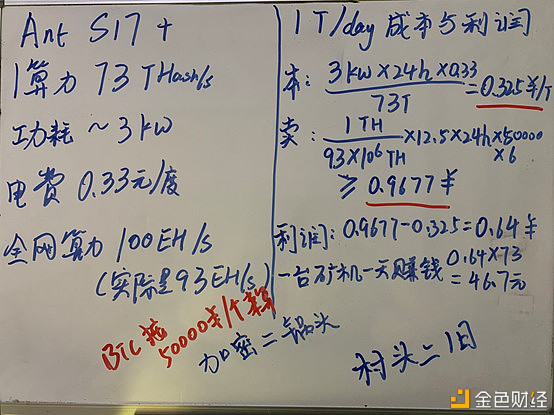 Ant S17+
算力 73 THash/s
功耗 ~3kw
电费 0.33元/度
全网算力 100EH/s
(实际是93EH/s)
BTC按
50000¥/个来算
加密二锅头
1T/day 成本与利润
本: 3kw×24h×0.33
73T
=0.325¥/T
卖: 1TH
93×10⁶TH
×12.5×24h×50000
×6
≥ 0.9677¥
利润: 0.9677-0.325=0.64¥
一台矿机一天赚钱 0.64×73
=46.7元
村头二旧
金色财经